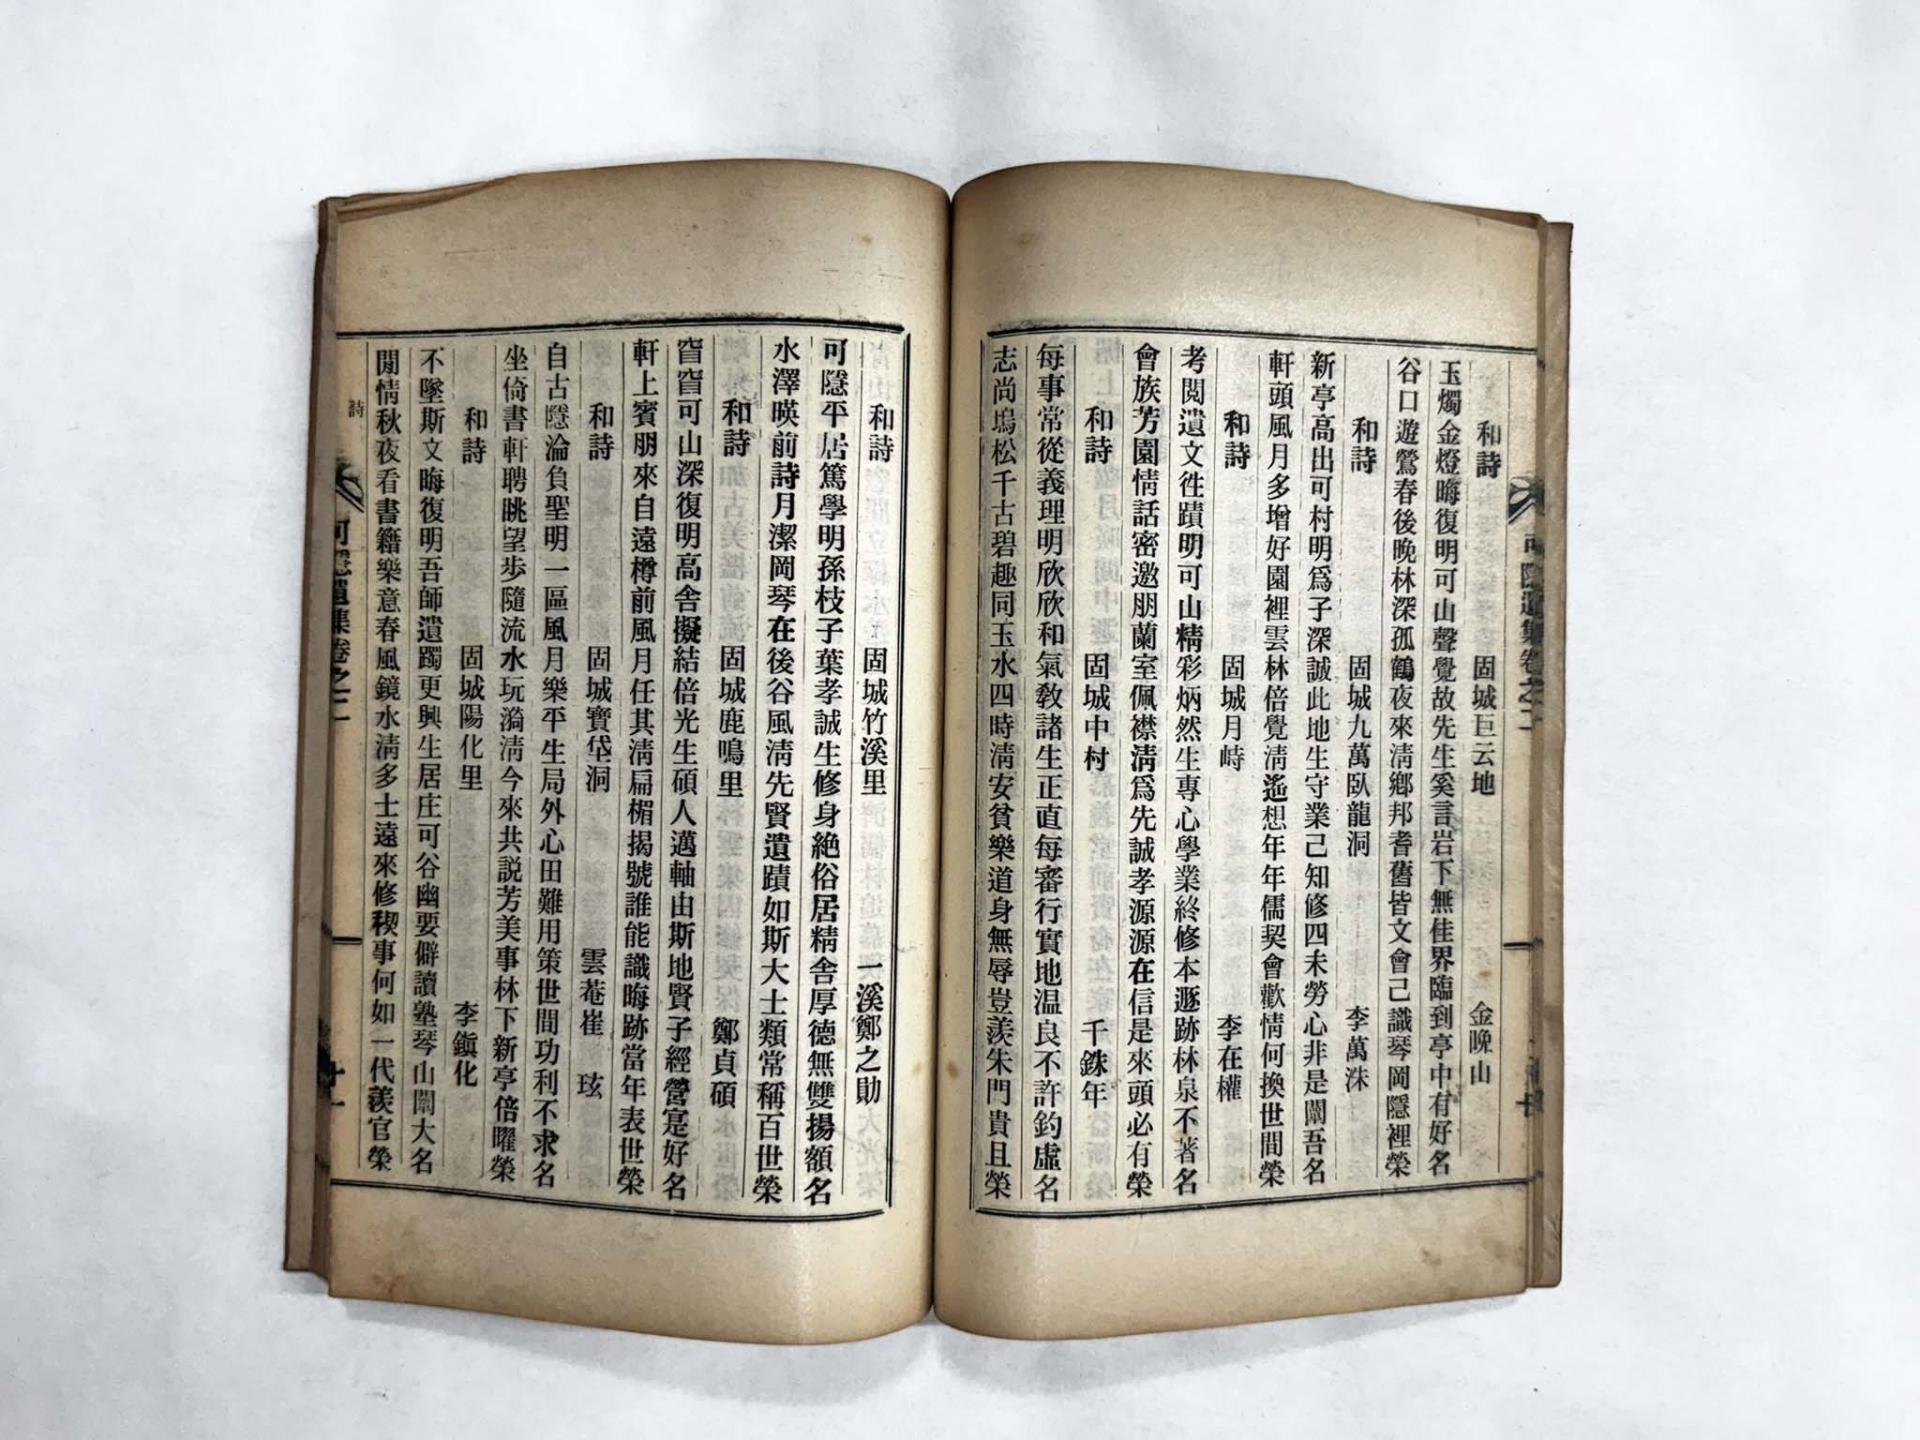 和詩 固城巨云地 金晚山
玉燭金燈晦復明可山聲覺故先生奚言岩下無佳界臨到亭中有好名
谷口遊鶯春後晚林深孤鶴夜來淸鄕邦耆舊皆文會己識琴岡隱裡榮
和詩 固城九萬臥龍洞 李萬洙
新亭高出可村明爲子深誠此地生守業己知修四未勞心非是闡吾名
軒頭風月多增好園裡雲林倍覺淸遙想年年儒契會歡情何換世間榮
和詩 固城月峙 李在權
考閱遺文徃蹟明可山精彩炳然生專心學業終修本遯跡林泉不著名
會族芳園情話密邀朋蘭室佩襟淸爲先誠孝源源在信是來頭必有榮
和詩 固城中村 千銖年
每事常從義理明欣欣和氣敎諸生正直每審行實地温良不許釣虛名
志尚塢松千古碧趣同玉水四時淸安貧樂道身無辱豈羨朱門貴且榮
可隱遺集卷之二 十
和詩 固城竹溪里 一溪鄭之勛
可隱平居篤學明孫枝子葉孝誠生修身絶俗居精舍厚德無雙揚額名
水澤暎前詩月潔岡琴在後谷風淸先賢遺蹟如斯大士類常稱百世榮
和詩 固城鹿鳴里 鄭貞碩
窅窅可山深復明高舍擬結倍光生碩人邁軸由斯地賢子經營寔好名
軒上賓朋來自遠樽前風月任其淸扁楣揭號誰能識晦跡當年表世榮
和詩 固城寶垈洞 雲菴崔玹
自古隱淪負聖明一區風月樂平生局外心田難用策世間功利不求名
坐倚書軒聘眺望步隨流水玩漪淸今來共説芳美事林下新亭倍曜榮
和詩 固城陽化里 李鎭化
不墜斯文晦復明吾師遺躅更興生居庄可谷幽要僻讀塾琴山闡大名
閒情秋夜看書籍樂意春風鏡水淸多士遠來修稧事何如一代羨官榮
詩 可隱遺集卷之二 十一